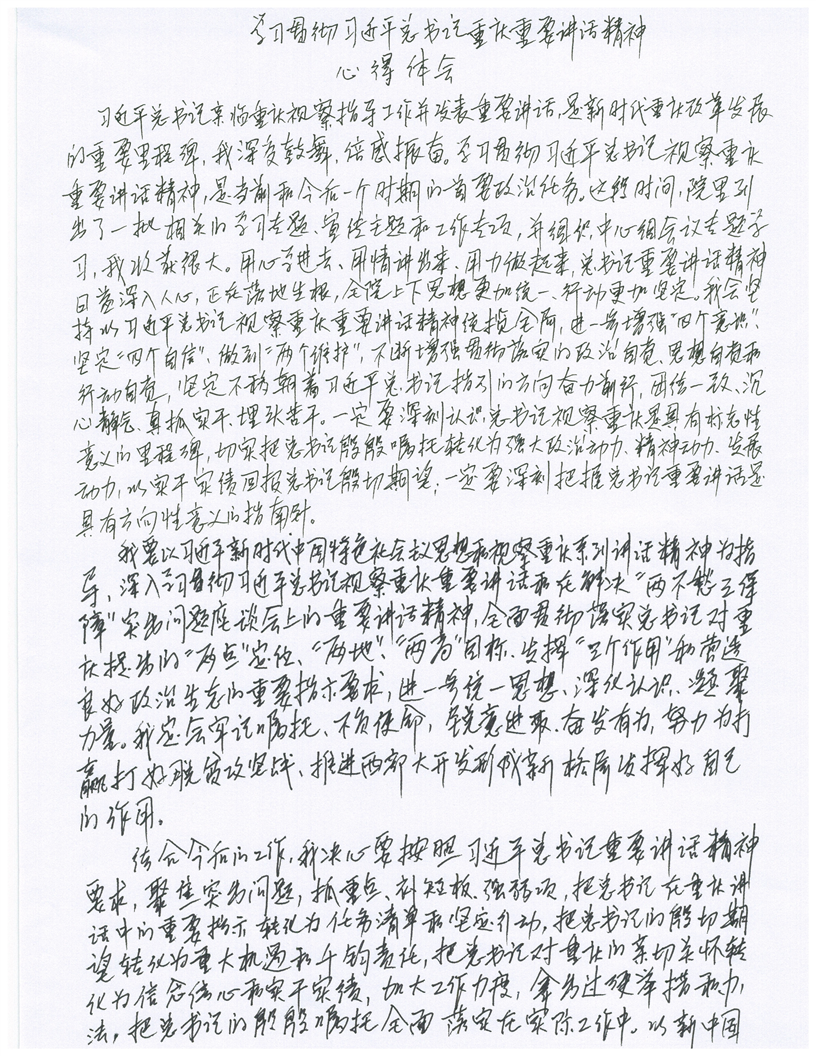 学习贯彻习近平总书记重庆重要讲话精神
心得体会
习近平总书记亲临重庆视察指导工作并发表重要讲话,是新时代重庆改革发展
的重要里程碑,我深受鼓舞,倍感振奋。学习贯彻习近平总书记视察重庆
重要讲话精神,是当前和今后一个时期的首要政治任务。这段时间,院里列
出了一批相关的学习专题、宣传主题和工作专项,并组织中心组会议专题学
习,我收获很大。用心学进去、用情讲出来、用力做起来,总书记重要讲话精神
日益深入人心,正在落地生根,全院上下思想更加统一、行动更加坚定。我会坚
持以习近平总书记视察重庆重要讲话精神统揽全局,进一步增强“四个意识”、
坚定“四个自信”、做到“两个维护”,不断增强贯彻落实的政治自觉、思想自觉和
行动自觉,坚定不移朝着习近平总书记指引的方向奋力前行,团结一致、沉
心静气、真抓实干、埋头苦干。一定要深刻认识总书记视察重庆是具有标志性
意义的里程碑,切实把总书记殷殷嘱托转化为强大政治动力、精神动力、发展
动力,以实干实绩回报总书记殷切期望;一定要深刻把握总书记重要讲话是
具有方向性意义的指南针。
我要以习近平新时代中国特色社会主义思想和视察重庆系列讲话精神为指
导,深入学习贯彻习近平总书记视察重庆重要讲话和在解决“两不愁三保
障”突出问题座谈会上的重要讲话精神,全面贯彻落实总书记对重
庆提出的“两点”定位、“两地”、“两高”目标、发挥“三个作用”和营造
良好政治生态的重要指示要求,进一步统一思想、深化认识、凝聚
力量。我定会牢记嘱托、不负使命,锐意进取、奋发有为,努力为打
赢打好脱贫攻坚战、推进西部大开发形成新格局发挥好自己
的作用。
结合今后的工作,我决心要按照习近平总书记重要讲话精神
要求,聚焦突出问题,抓重点、补短板、强弱项,把总书记在重庆讲
话中的重要指示转化为任务清单和坚定行动,把总书记的殷切期
望转化为重大机遇和千钧责任,把总书记对重庆的亲切关怀转
化为信念信心和实干实绩,加大工作力度,拿出过硬举措和办
法,把总书记的殷殷嘱托全面落实在实际工作中。以新中国